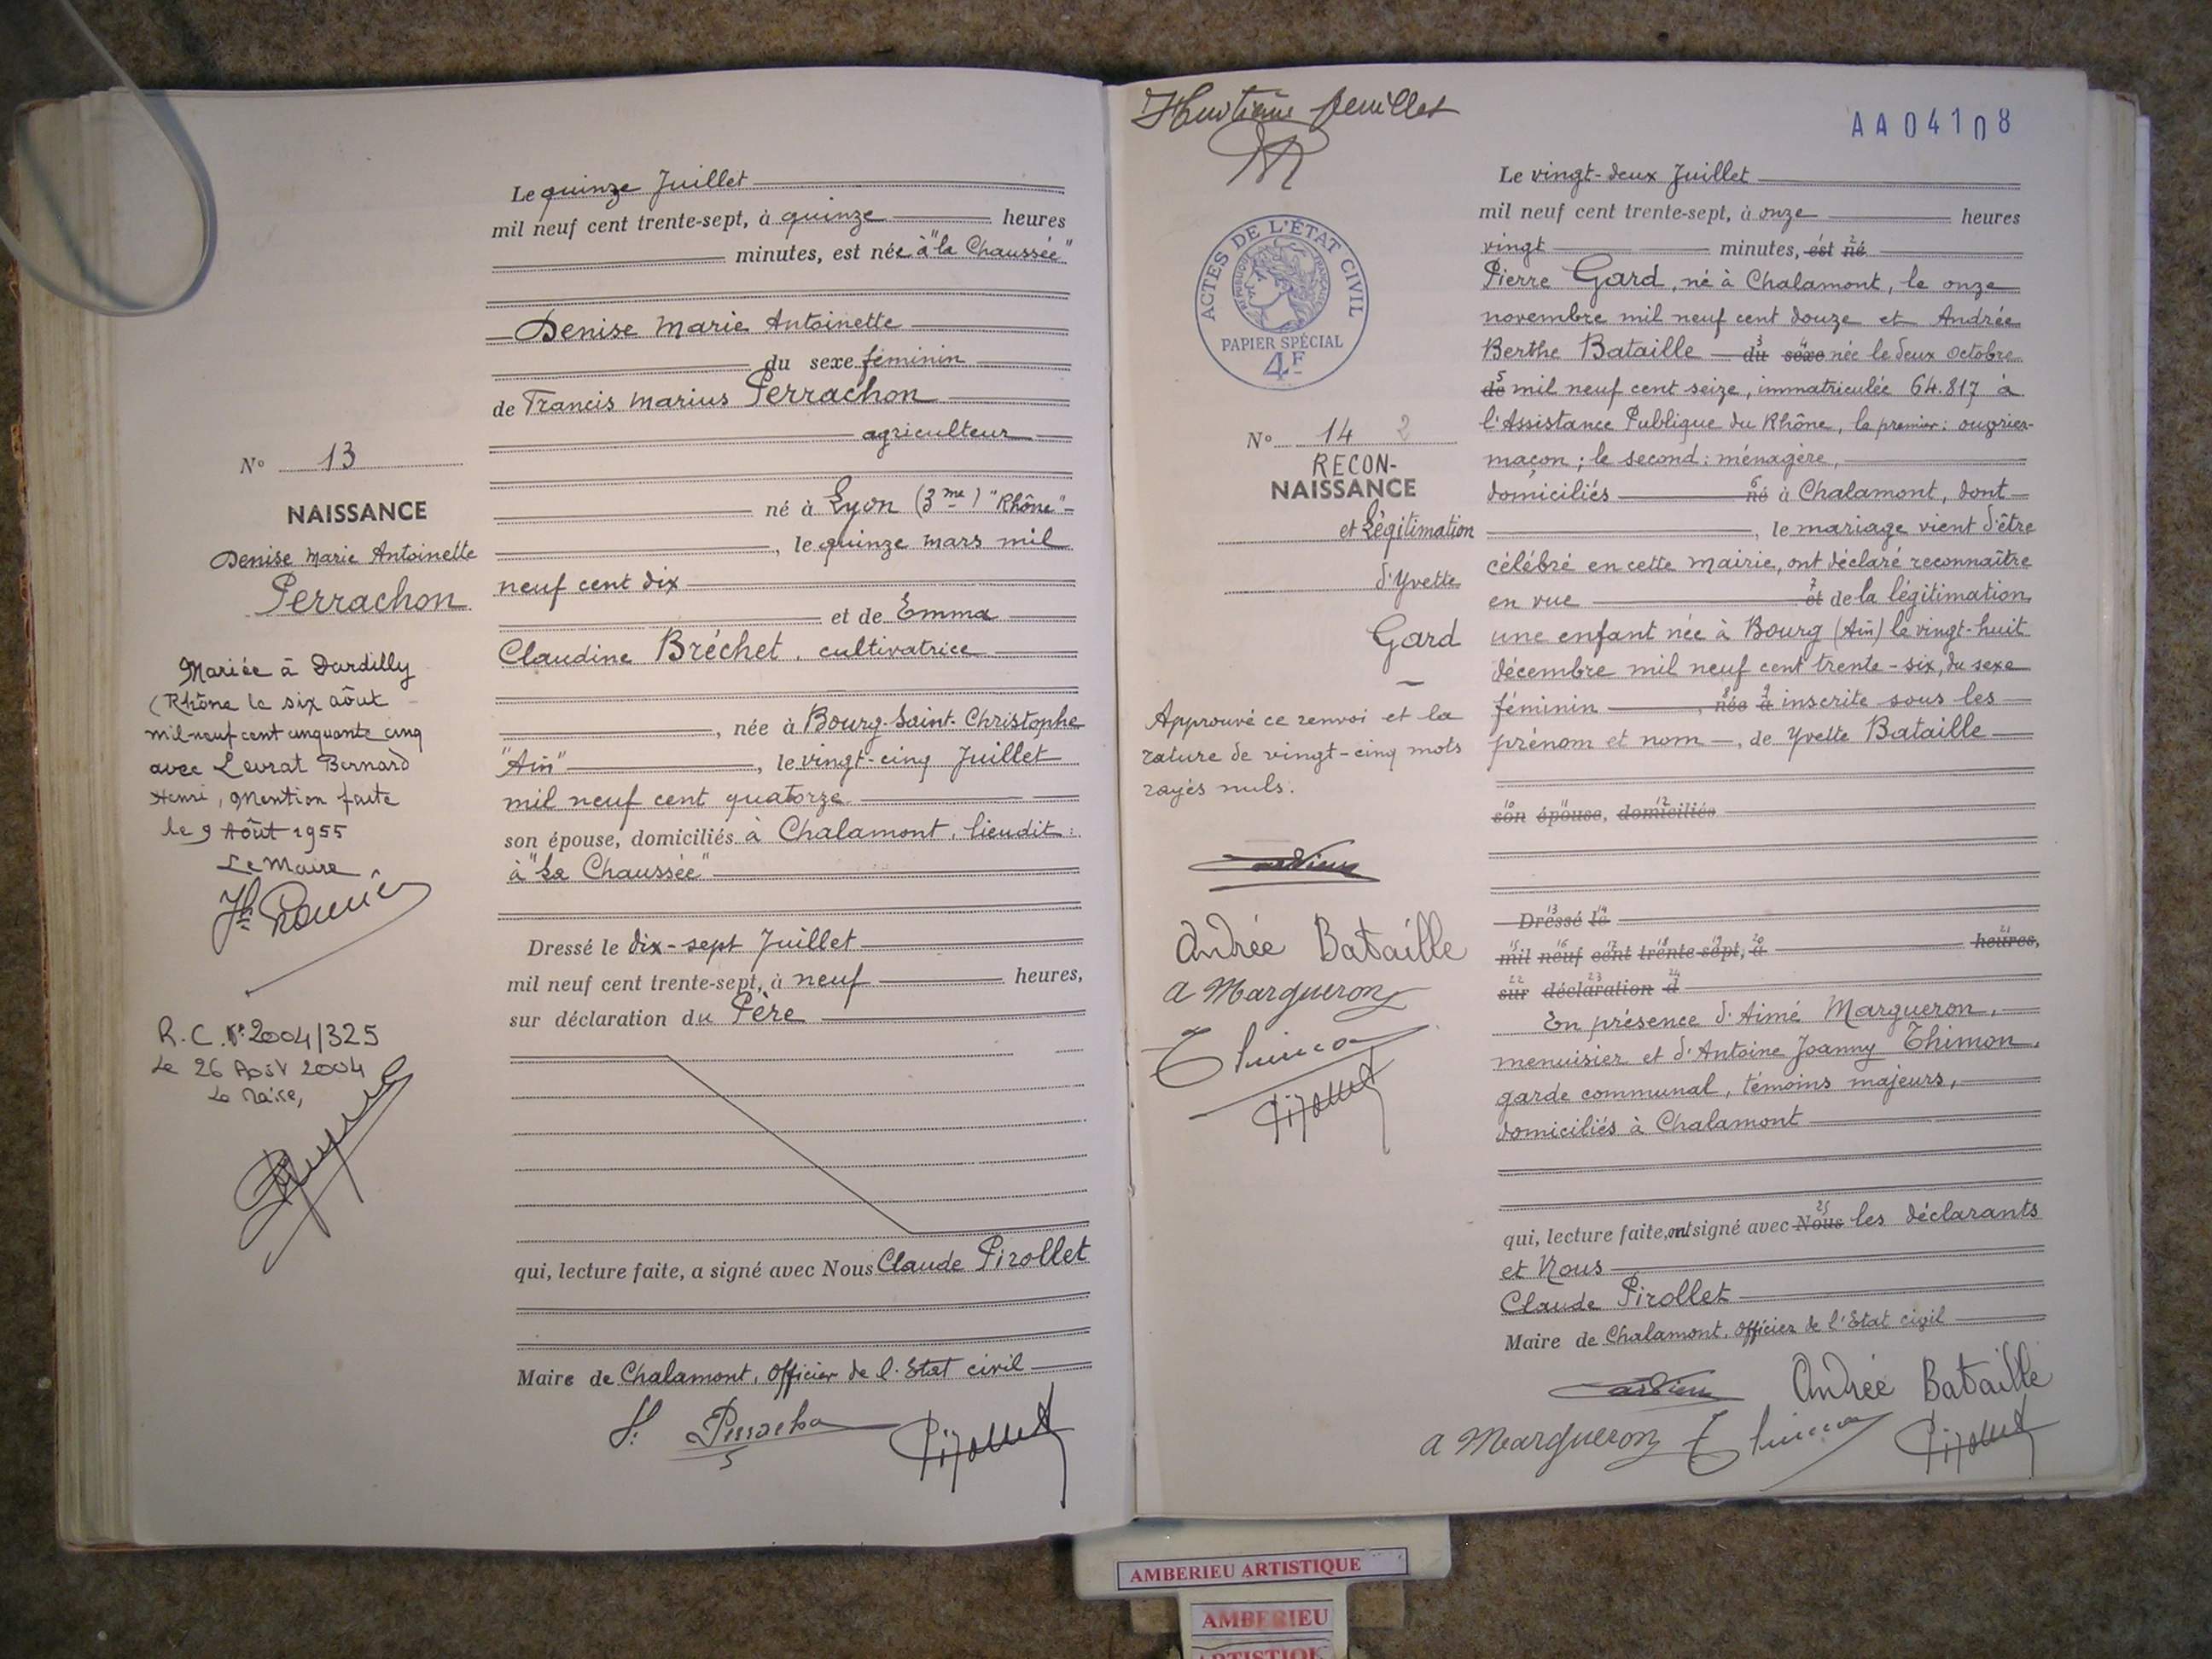 Le quinze Juillet
mil neuf cent trente-sept, à quinze heures
minutes, est née à "la Chaussée"
Denise Marie Antoinette
du sexe féminin
de Francis Marius Perrachon
agriculteur
né à Lyon (3me) "Rhône"
, le quinze mars mil
neuf cent dix
et de Emma
Claudine Bréchet, cultivatrice
, née à Bourg-Saint-Christophe
"Ain", le vingt-cinq Juillet
mil neuf cent quatorze
son épouse, domiciliés à Chalamont, lieudit :
à "La Chaussée"
Dressé le dix-sept Juillet
mil neuf cent trente-sept, à neuf heures,
sur déclaration du Père
qui, lecture faite, a signé avec Nous Claude Pirollet
Maire de Chalamont, Officier de l'Etat civil
Pirollet
N° 13
NAISSANCE
Denise Marie Antoinette
Perrachon
Mariée à Dardilly
(Rhône le six août
mil neuf cent cinquante cinq
avec Levrat Bernard
Henri, Mention faite
le 9 Août 1955
Le Maire
R.C. N° 2004/325
Le 26 Août 2004
Le Maire,
Huitième feuillet
AA04108
ACTES DE L'ÉTAT CIVIL
RÉPUBLIQUE FRANÇAISE
PAPIER SPÉCIAL
4F
N° 14 2
RECON-
NAISSANCE
et Légitimation
d'Yvette
Gard
Approuvé ce renvoi et la
rature de vingt-cinq mots
rayés nuls.
Andrée Bataille
a Margueron
Pirollet
Le vingt-deux Juillet
mil neuf cent trente-sept, à onze heures
vingt minutes, est né
Pierre Gard, né à Chalamont, le onze
novembre mil neuf cent douze et Andrée
Berthe Bataille du sexe née le deux octobre
de mil neuf cent seize, immatriculée 64.817 à
l'Assistance Publique du Rhône, le premier : ouvrier-
maçon ; le second : ménagère,
domiciliés né à Chalamont, dont
, le mariage vient d'être
célébré en cette mairie, ont déclaré reconnaître
en vue et de la légitimation,
une enfant née à Bourg (Ain) le vingt-huit
décembre mil neuf cent trente-six, du sexe
féminin, née à inscrite sous les
prénom et nom, de Yvette Bataille
son épouse, domiciliés
Dressé le
mil neuf cent trente-sept, à heures,
sur déclaration d
En présence d'Aimé Margueron,
menuisier et d'Antoine Joanny Thimon,
garde communal, témoins majeurs,
domiciliés à Chalamont
qui, lecture faite, ont signé avec Nous les déclarants
et Nous
Claude Pirollet
Maire de Chalamont, Officier de l'Etat civil
Andrée Bataille
a Margueron Pirollet
AMBERIEU ARTISTIQUE
AMBERIEU
ARTISTIQUE